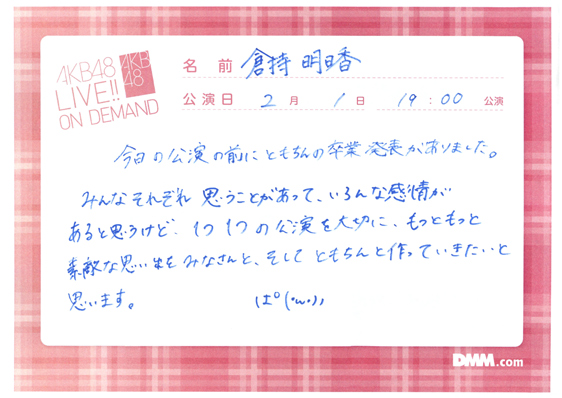 AKB48
LIVE!!
ON DEMAND
AKB
48
名前 倉持 明日香
公演日 2月 1日 19:00 公演
今日の公演の前にともちんの卒業発表がありました。
みんなそれぞれ思うことがあって、いろんな感情が
あると思うけど、1つ1つの公演を大切に、もっともっと
素敵な思い出をみなさんと、そしてともちんと作っていきたいと
思います。 ぱ°(・ω・)ﾉﾉ
DMM.com